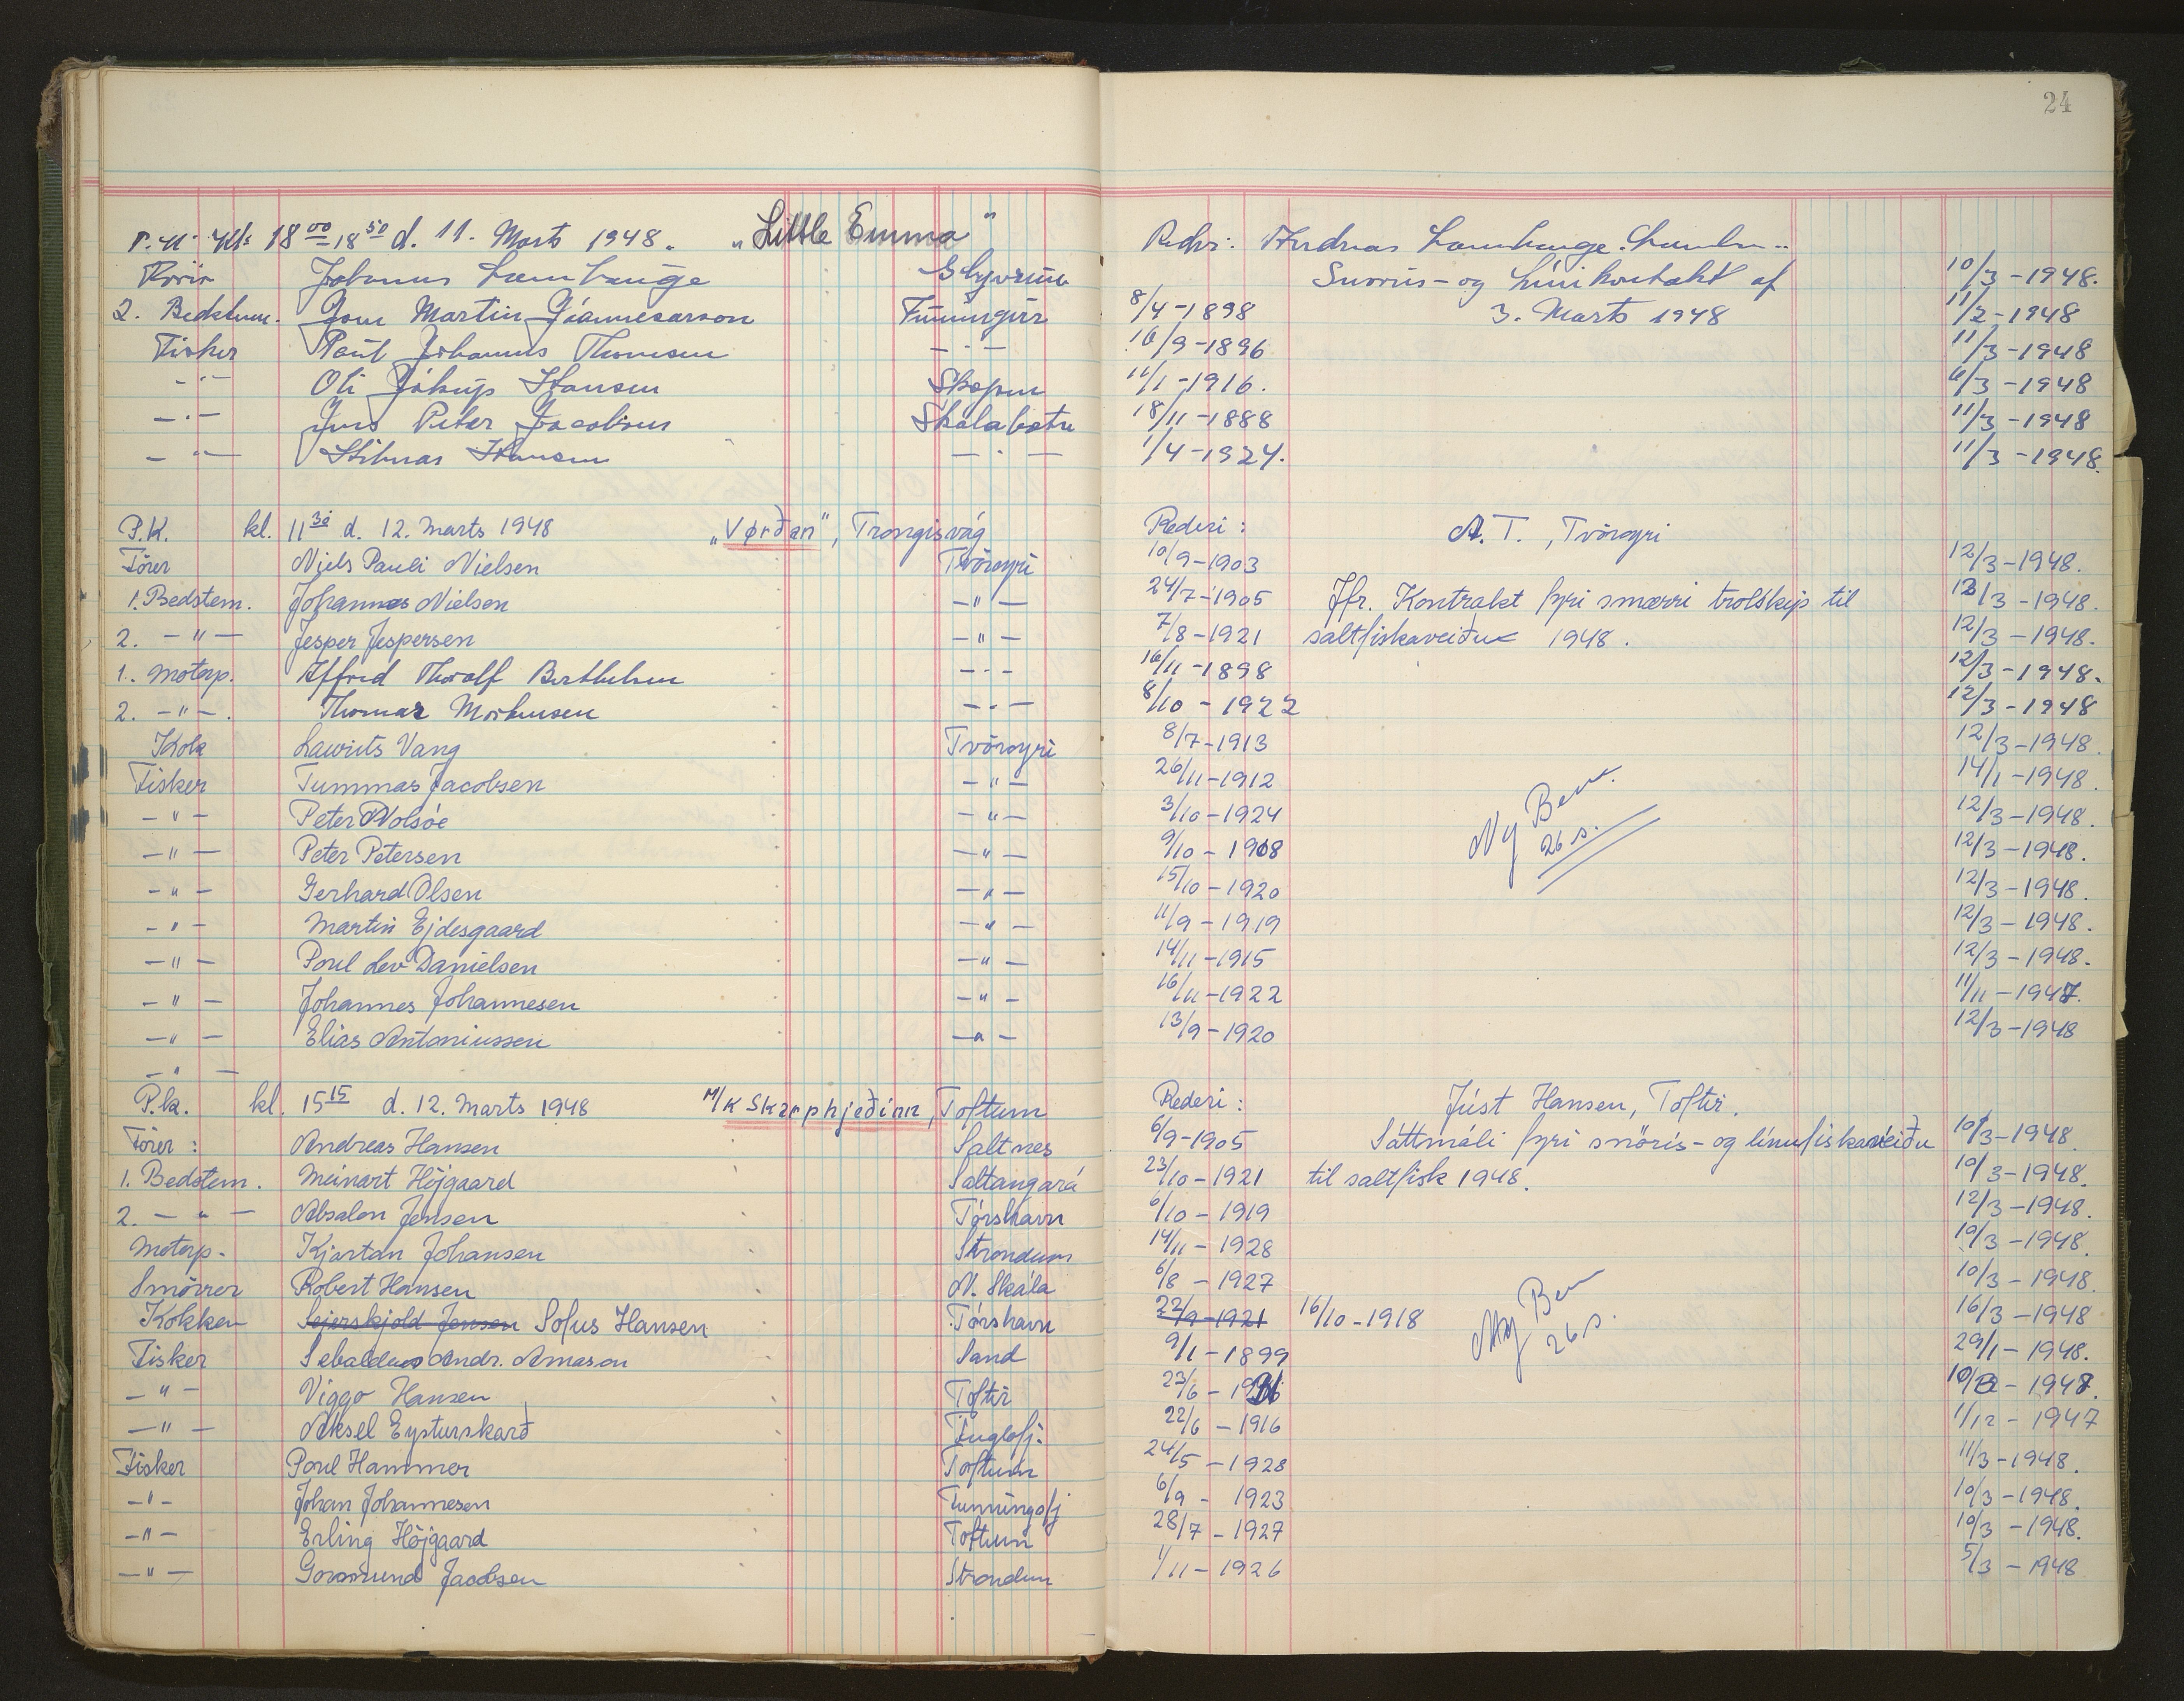 24
kl. 18 00 - 18 50 d. 11. Marts 1948. „Little Emma"
Johannus Lamhauge Glyvrum 10/3 - 1948.
Snøris- og línikontrakt af
2. Bedstem. Martin Funingur 8/4 - 1898 3. Marts 1948 11/2 - 1948
Fisker Paul Johannus Thomsen — " — 16/9 - 1896 11/3 - 1948
— " — Oli Jákup Hansen Skopun 11/1 - 1916. 11/3 - 1948
— " — Jens Peter Jacobsen Skálabotn 18/11 - 1888 11/3 - 1948
— " — Hansen — " — 1/4 - 1924. 11/3 - 1948.
P.K. kl. 11 30 d. 12. marts 1948 „Vørðan", Trongisvág Rederi: A. T., Tvöroyri
Förer Niels Pauli Nielsen Tvöroyri 10/9 - 1903 12/3 - 1948.
1. Bedstem. Johannes Nielsen — " — 24/7 - 1905 Jfr. Kontrakt fyri smærri trolskip til 12/3 - 1948.
2. — " — Jesper Jespersen — " — 7/8 - 1921 saltfiskaveiðu 1948. 12/3 - 1948.
1. motorp. Alfred Thorolf Berthelsen — " — 16/11 - 1898 12/3 - 1948.
2. — " — . Thomas Mortensen — " — 8/10 - 1922 12/3 - 1948
Kok Lawrits Vang Tvöroyri 8/7 - 1913 12/3 - 1948.
Fisker Tummas Jacobsen — " — 26/11 - 1912 14/1 - 1948.
— " — Peter Nolsöe — " — 3/10 - 1924 Ny Bem. 12/3 - 1948.
— " — Peter Petersen — " — 9/10 - 1908 26 s. 12/3 - 1948.
— " — Gerhard Olsen — " — 15/10 - 1920 12/3 - 1948.
— " — Martin Ejdesgaard — " — 11/9 - 1919 12/3 - 1948.
— " — Poul Lev Danielsen — " — 14/11 - 1915 12/3 - 1948.
— " — Johannes Johannesen — " — 16/11 - 1922 11/11 - 1947.
— " — Elias Antoniussen — " — 13/9 - 1920 12/3 - 1948
— " —
P.k. kl. 15 15 d. 12. marts 1948 M/K Skarphjeðinn, Toftum Rederi: Júst Hansen, Toftir.
Förer : Andreas Hansen Saltnes 6/9 - 1905 Sáttmáli fyri snöris- og línufiskaveiðu 10/3 - 1948.
1. Bedstem. Meinart Höjgaard Saltangará 23/10 - 1921 til saltfisk 1948. 10/3 - 1948.
2. — " — Absalon Jensen Tórshavn 6/10 - 1919 12/3 - 1948.
Motorp. Kjartan Johansen Strondum 14/11 - 1928 10/3 - 1948.
Smörrer Robert Hansen N. Skála 6/8 - 1927 10/3 - 1948.
Kokken Sejerskjold Jensen Sofus Hansen Tórshavn 22/9 - 1921 16/10 - 1918 Ny Bem 16/3 - 1948
Fisker Sebaldus Andr. Amason Sand 9/1 - 1899 26 s. 29/1 - 1948.
— " — Viggo Hansen Toftir 23/6 - 10/
— " — Aksel Eysturskarð Fuglafj. 22/6 - 1916 1/12 - 1947
Fisker Poul Hammer Toftum 24/5 - 1928 11/3 - 1948.
— " — Johan Johannesen Funningsfj 6/9 - 1923 10/3 - 1948.
— " — Erling Höjgaard Toftum 28/7 - 1927 10/3 - 1948.
— " — Gormund Jacobsen Strondum 1/11 - 1926 5/3 - 1948